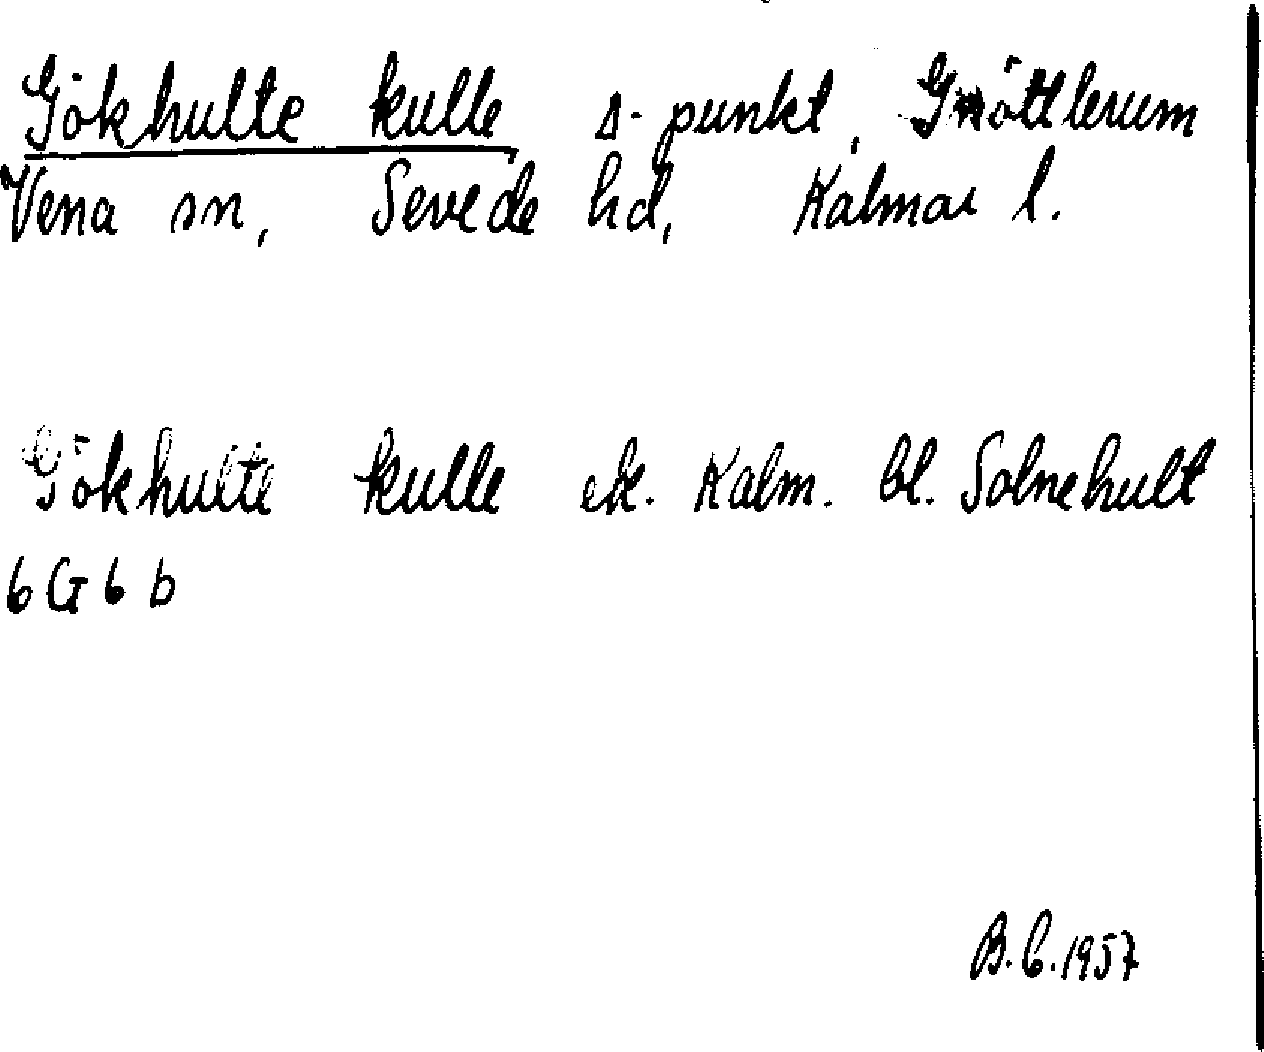 Gökhulte kulle, s-punkt, Gnöttlerum
Vena sn, Sevede hd, Kalmar l.
Gökhulte kulle ek. Kalm. bl. Solnehult
6G6b
B.C. 1957